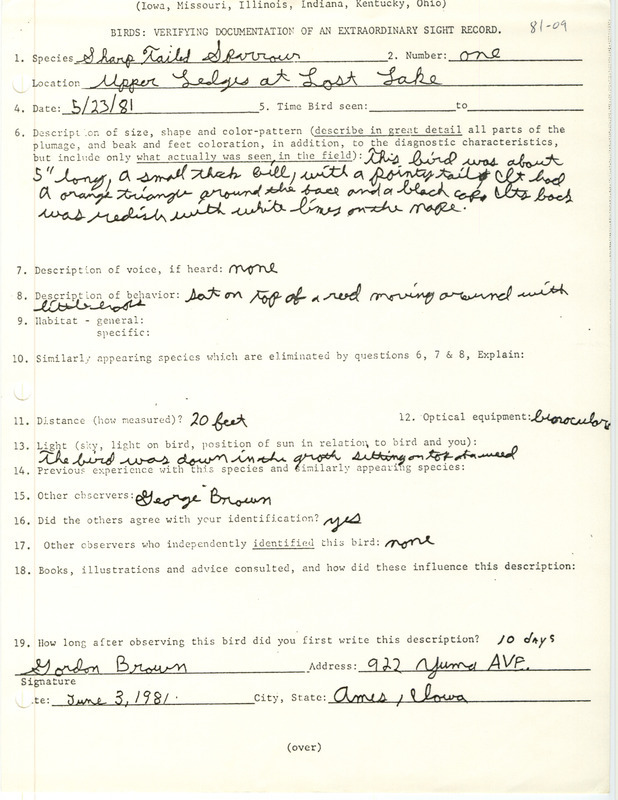 (Iowa, Missouri, Illinois, Indiana, Kentucky, Ohio)
BIRDS: VERIFYING DOCUMENTATION OF AN EXTRAORDINARY SIGHT RECORD. 81-09
1. Species Sharp Tailed Sparrow 2. Number: one
Location Upper Ledges at Lost Lake
4. Date: 5/23/81 5. Time Bird seen: to
6. Description of size, shape and color-pattern (describe in great detail all parts of the
plumage, and beak and feet coloration, in addition, to the diagnostic characteristics,
but include only what actually was seen in the field): This bird was about
5" long, a small thick bill, with a pointy tail. It had
a orange triangle around the face and a black cap. Its back
was redish with white lines on the nape.
7. Description of voice, if heard: none
8. Description of behavior: sat on top of a reed moving around with
little
9. Habitat - general:
specific:
10. Similarly appearing species which are eliminated by questions 6, 7 & 8, Explain:
11. Distance (how measured)? 20 feet 12. Optical equipment: binoculars
13. Light (sky, light on bird, position of sun in relation to bird and you):
The bird was down in the groth sitting on top of a weed
14. Previous experience with this species and similarly appearing species:
15. Other observers: George Brown
16. Did the others agree with your identification? yes
17. Other observers who independently identified this bird: none
18. Books, illustrations and advice consulted, and how did these influence this description:
19. How long after observing this bird did you first write this description? 10 days
Gordon Brown Address: 922 Yuma AVE.
Signature
te: June 3, 1981. City, State: Ames, Iowa
(over)